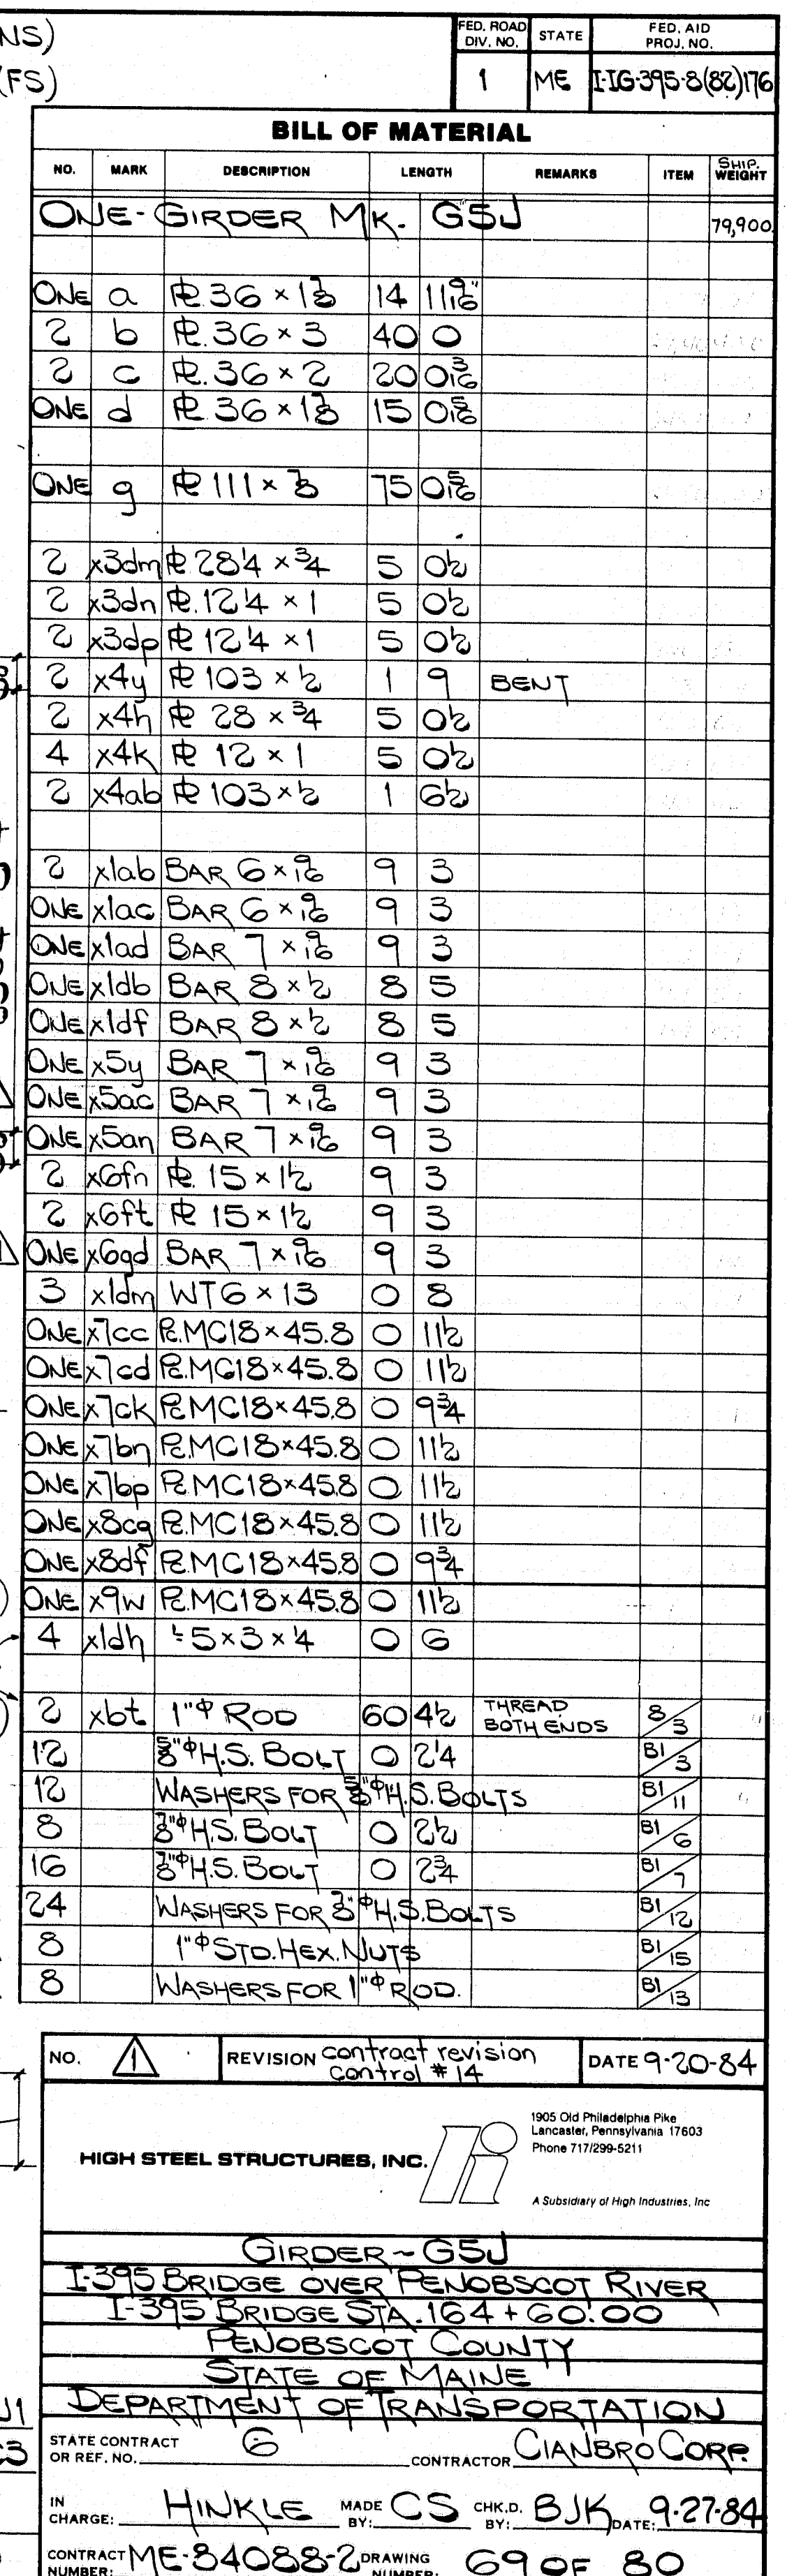 NS)
(FS)
FED. ROAD DIV. NO. STATE FED. AID PROJ. NO.
1 ME I-IG-395-8(82)176
BILL OF MATERIAL
NO. MARK DESCRIPTION LENGTH REMARKS ITEM SHIP. WEIGHT
ONE-GIRDER MK. G5J 79,900
ONE a PL 36 × 1 3/8 14 11 9/16"
2 b PL 36 × 3 40 0
2 c PL 36 × 2 20 0 3/16
ONE d PL 36 × 1 3/8 15 0 5/16
ONE g PL 111 × 7/8 75 0 5/16
2 x3dm PL 28 1/4 × 3/4 5 0 1/2
2 x3dn PL 12 1/4 × 1 5 0 1/2
2 x3dp PL 12 1/4 × 1 5 0 1/2
2 x4y PL 103 × 1/2 1 9 BENT
2 x4h PL 28 × 3/4 5 0 1/2
4 x4k PL 12 × 1 5 0 1/2
2 x4ab PL 103 × 1/2 1 6 1/2
2 x1ab BAR 6 × 9/16 9 3
ONE x1ac BAR 6 × 9/16 9 3
ONE x1ad BAR 7 × 9/16 9 3
ONE x1db BAR 8 × 1/2 8 5
ONE x1df BAR 8 × 1/2 8 5
ONE x5y BAR 7 × 9/16 9 3
ONE x5ac BAR 7 × 9/16 9 3
ONE x5an BAR 7 × 9/16 9 3
2 x6fn PL 15 × 1 1/2 9 3
2 x6ft PL 15 × 1 1/2 9 3
ONE x6gd BAR 7 × 9/16 9 3
3 x1dm WT6 × 13 0 8
ONE x7cc PC. MC18 × 45.8 0 11 1/2
ONE x7cd PC. MC18 × 45.8 0 11 1/2
ONE x7ck PC. MC18 × 45.8 0 9 3/4
ONE x7bn PC. MC18 × 45.8 0 11 1/2
ONE x7bp PC. MC18 × 45.8 0 11 1/2
ONE x8cg PC. MC18 × 45.8 0 11 1/2
ONE x8df PC. MC18 × 45.8 0 9 3/4
ONE x9w PC. MC18 × 45.8 0 11 1/2
4 x1dh L 5 × 3 × 1/4 0 6
2 xbt 1"Φ ROD 60 4 1/2 THREAD BOTH ENDS 8/3
12 5/8"Φ H.S. BOLT 0 2 1/4 B1/3
12 WASHERS FOR 5/8"Φ H.S. BOLTS B1/11
8 7/8"Φ H.S. BOLT 0 2 1/2 B1/6
16 7/8"Φ H.S. BOLT 0 2 3/4 B1/7
24 WASHERS FOR 7/8"Φ H.S. BOLTS B1/12
8 1"Φ STD. HEX. NUTS B1/15
8 WASHERS FOR 1"Φ ROD. B1/13
NO. 1 REVISION contract revision control #14 DATE 9-20-84
HIGH STEEL STRUCTURES, INC.
1905 Old Philadelphia Pike
Lancaster, Pennsylvania 17603
Phone 717/299-5211
A Subsidiary of High Industries, Inc
GIRDER~G5J
I-395 BRIDGE OVER PENOBSCOT RIVER
I-395 BRIDGE STA. 164 + 60.00
PENOBSCOT COUNTY
STATE OF MAINE
DEPARTMENT OF TRANSPORTATION
STATE CONTRACT OR REF. NO. 6 CONTRACTOR CIANBRO CORP.
IN CHARGE: HINKLE MADE BY: CS CHK.D. BY: BJK DATE: 9-27-84
CONTRACT NUMBER: ME-84088-2 DRAWING NUMBER: 69 OF 80